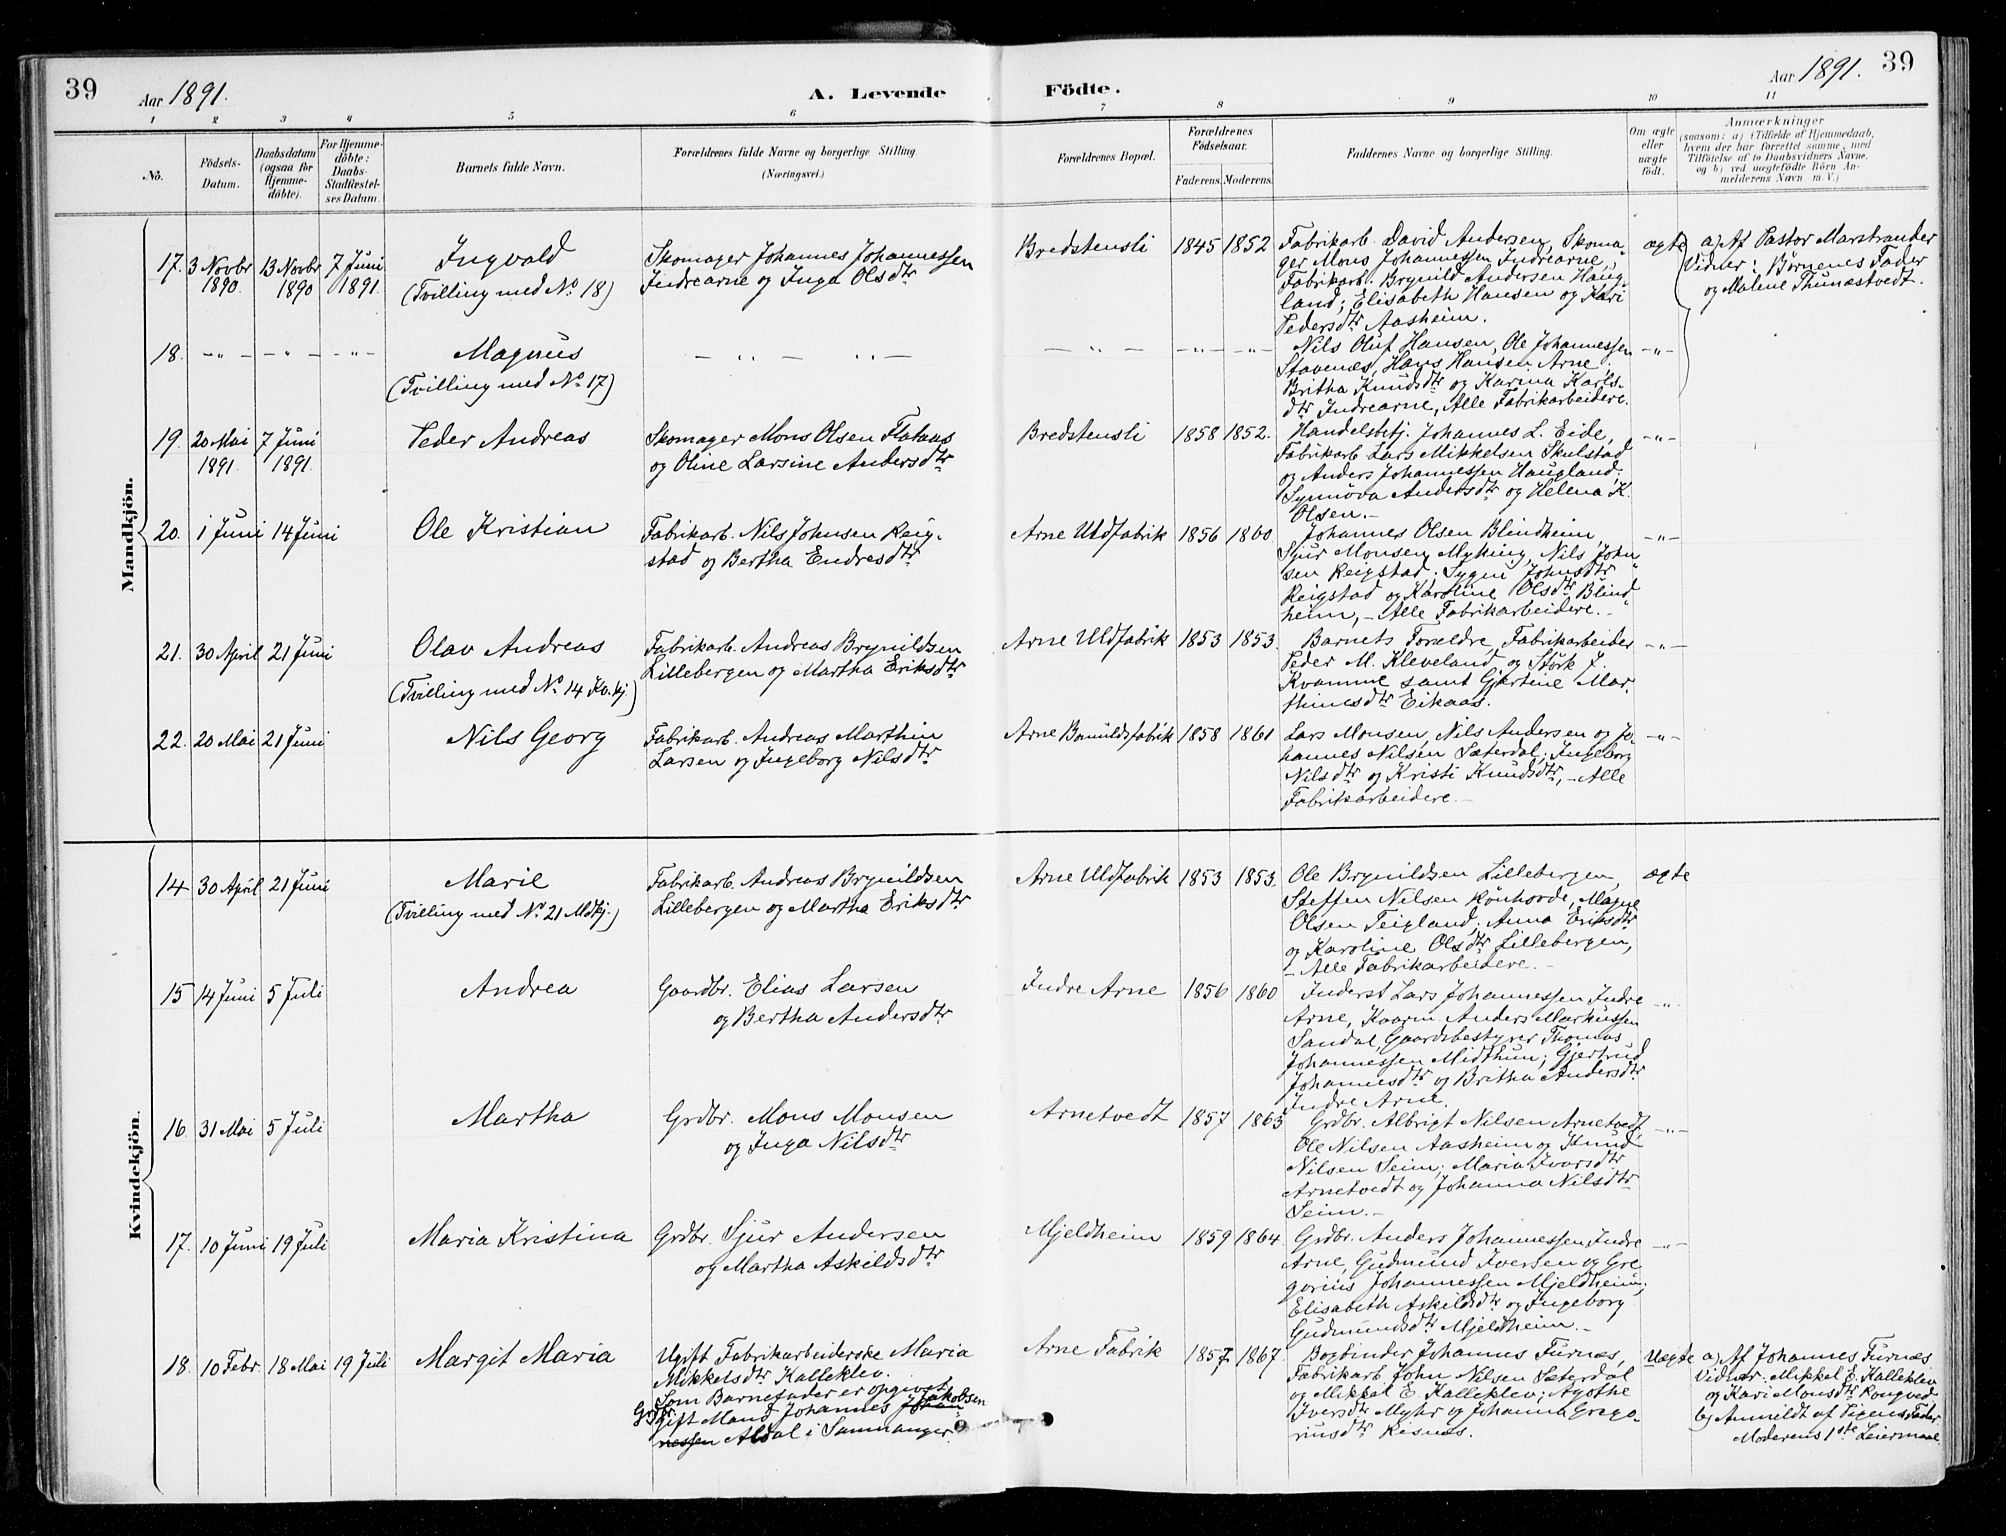 39
Aar 1891.
A. Levende Födte.
Aar 1891.
39
1 2 3 4 5 6 7 8 9 10 11
No.
Födsels-Datum.
Daabsdatum (ogsaa for Hjemmedöbte).
For Hjemmedöbte: Daabs-Stadfæstelses Datum.
Barnets fulde Navn.
Forældrenes fulde Navne og borgerlige Stilling.
(Næringsvei.)
Forældrenes Bopæl.
Forældrenes Födselsaar.
Faderens. Moderens.
Faddernes Navne og borgerlige Stilling.
Om ægte eller uægte födt.
Anmærkninger
(saasom: a) i Tilfælde af Hjemmedaab, hvem der har forrettet samme, med Tilföielse af to Daabsvidners Navne, og b) ved uægtefödte Börn Anmelderens Navn m. V.)
Mandkjön.
17. 3 Novbr 1890. 13 Novbr 1890 7 Juni 1891.
Ingvald
(Tvilling med No. 18)
Skomager Johannes Johannessen
Indrearne og Inga Olsdtr
Bredstensli 1845 1852
Fabrikarb. David Andersen, Skoma-
ger Mons Johannessen Indrearne,
Fabrikarb. Brynild Andersen Haug-
land; Elisabeth Hansen og Kari
Pedersdtr Aasheim.
ægte
a) Af Pastor Marstrander
Vidner: Børnenes Fader
og Malene Thunæstvedt.
18. -„- -„- -„-
Magnus
(Tvilling med No. 17)
- „ - „ -
- „ - -„- -„-
Nils Oluf Hansen, Ole Johannessen
Stavenæs, Hans Hansen Arne;
Britha Knudsdtr og Karina Karls-
dtr Indrearne, Alle Fabrikarbeidere.
-„-
19. 20 Mai 1891. 7 Juni 1891.
Peder Andreas
Skomager Mons Olsen Flataas
og Oline Larsine Andersdtr
Bredstensli 1858 1852.
Handelsbetj. Johannes L. Eide,
Fabrikarb Lars Mikkelsen Skulstad
og Anders Johannessen Haugland;
Synnöva Andersdtr og Helena K.
Olsen.-
-„-
20. 1 Juni 14 Juni
Ole Kristian
Fabrikarb. Nils Johnsen Reig-
stad og Bertha Endresdtr
Arne Uldfabrik 1856 1860
Johannes Olsen Blindheim,
Sjur Monsen Myking, Nils John-
sen Reigstad; Sygni Johnsdtr
Reigstad og Karoline Olsdtr Blind-
heim, - Alle Fabrikarbeidere.-
-„-
21. 30 April 21 Juni
Olav Andreas
(Tvilling med No 14 Kv.kj.)
Fabrikarb. Andreas Brynildsen
Lillebergen og Martha Eriksdtr
Arne Uldfabrik 1853 1853.
Barnets Forældre, Fabrikarbeider
Peder M. Kleveland og Störk J.
Kvamme samt Gjertine Mar-
thinesdtr Eikaas.
-„-
22. 20 Mai 21 Juni
Nils Georg
Fabrikarb. Andreas Marthin
Larsen og Ingeborg Nilsdtr
Arne Bomuldsfabrik 1858 1861
Lars Monsen, Nils Andersen og Jo-
hannes Nilsen Sæterdal; Ingeborg
Nilsdtr og Kristi Knudsdtr, - Alle
Fabrikarbeidere.-
-„-
Kvindekjön.
14 30 April 21 Juni
Marie
(Tvilling med No 21 Mdkj.)
Fabrikarb. Andreas Brynildsen
Lillebergen og Martha Eriksdtr
Arne Uldfabrik 1853 1853.
Ole Brynildsen Lillebergen,
Steffen Nilsen Rönhovde, Magne
Olsen Teigland; Anna Eriksdtr
og Karoline Olsdtr Lillebergen,
- Alle Fabrikarbeidere.-
ægte
15 14 Juni 5 Juli
Andrea
Gaardbr. Elias Larsen
og Bertha Andersdtr
Indre Arne 1856 1860
Inderst Lars Johannessen Indre
Arne, Kaarm. Anders Markussen
Sandal, Gaardsbestyrer Thomas
Johannessen Midthun; Gjertrud
Johannesdtr og Britha Andersdtr
Indre Arne.
-„-
16. 31 Mai 5 Juli
Martha
Grdbr. Mons Monsen
og Inga Nilsdtr
Arnetvedt 1857 1863
Grdbr. Albrigt Nilsen Arnetvedt,
Ole Nilsen Aasheim og Knud
Nilsen Seim; Maria Ivarsdtr
Arnetvedt og Johanna Nilsdtr
Seim.-
-„-
17. 10 Juni 19 Juli
Maria Kristina
Grdbr. Sjur Andersen
og Martha Askildsdtr
Mjeldheim 1859 1864
Grdbr. Anders Johannessen Indre
Arne, Gudmund Iversen og Gre-
gorius Johannessen Mjeldheim;
Elisabeth Askildsdtr og Ingeborg
Gudmundsdtr Mjeldheim.-
-„-
18. 10 Febr. 18 Mai 19 Juli
Margit Maria
Ugift Fabrikarbeiderske Maria
Mikkelsdtr Kalleklev.
Som Barnefader er opgivet
Grdbr. gift Mand Johannes Johan Jakobsen
nessen Aldal i Samnanger.
Arne Fabrik 1857 1867
Bogbinder Johannes Furnæs,
Fabrikarb. John Nilsen Sæterdal
og Mikkel E. Kalleklev; Agothe
Iversdtr Myhr og Johanna Grego-
riusdtr Risnæs.
Uægte
a) Af Johannes Furnæs
Vidner: Mikkel E. Kalleklev
og Kari Monsdtr Rongved
b) Anmeldt af Pigens Fader
Moderens 1ste Leiermaal.